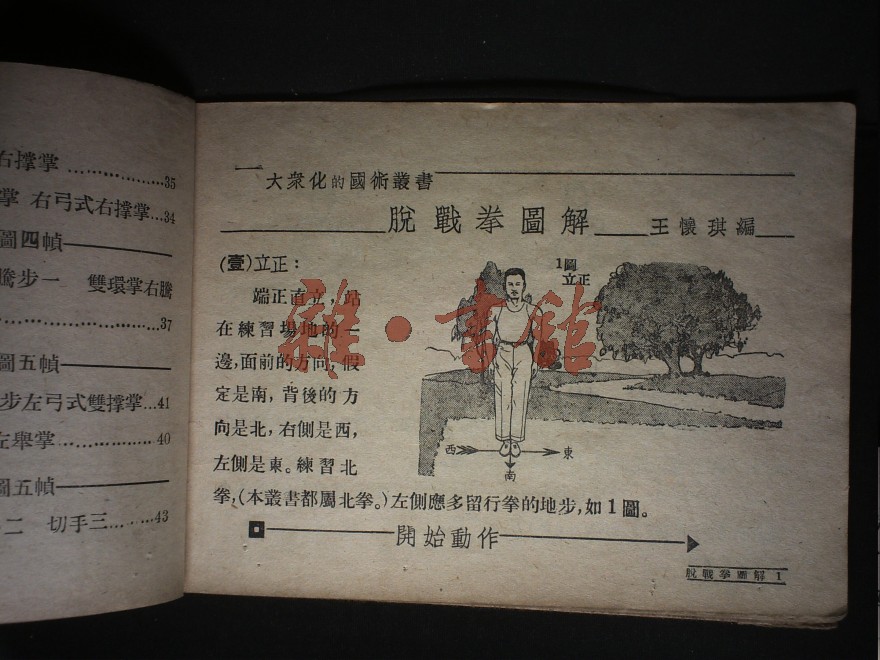 右撐掌 ................35
掌 右弓式右撐掌...34
圖四幀
騰步一 雙環掌右騰
................37
圖五幀
步左弓式雙撐掌...41
左舉掌................40
圖五幀
二 切手三........43
大衆化的國術叢書
脫戰拳圖解 王懷琪編
(壹)立正：
1圖
立正
端正直立，站
在練習場地的一
邊，面前的方向，假
定是南，背後的方
向是北，右側是西，
左側是東。練習北
拳，(本叢書都屬北拳。)左側應多留行拳的地步，如1圖。
西
東
南
開始動作
脫戰拳圖解 1
雜·書館